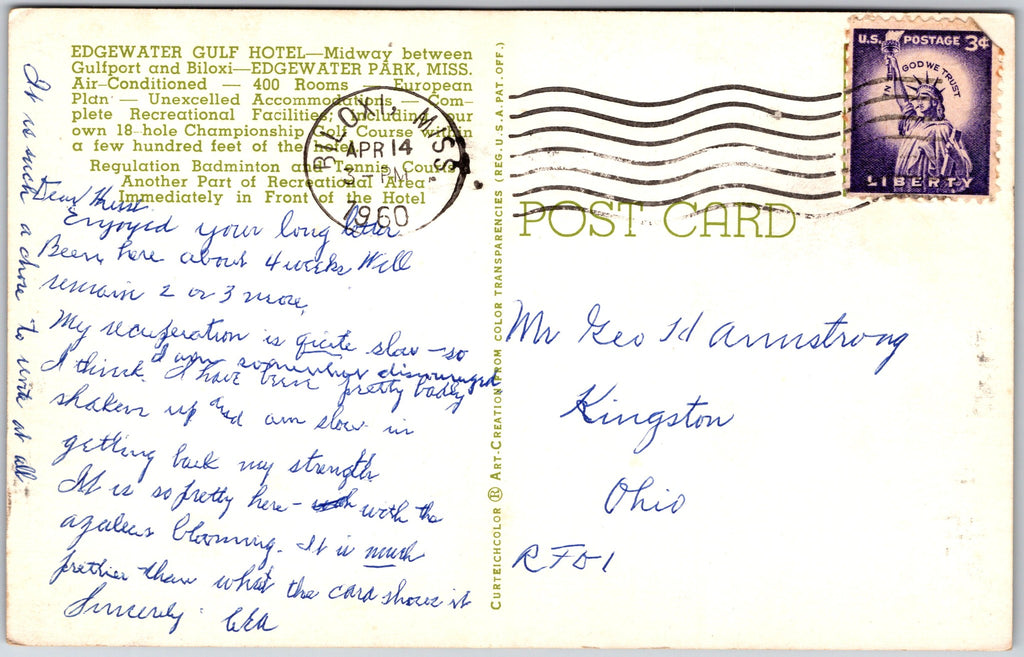 EDGEWATER GULF HOTEL—Midway between
Gulfport and Biloxi—EDGEWATER PARK, MISS.
Air-Conditioned — 400 Rooms — European
Plan — Unexcelled Accommodations — Com-
plete Recreational Facilities, including our
own 18-hole Championship Course within
a few hundred feet of the hotel
Regulation Badminton and Tennis Courts
Another Part of Recreational Area
Immediately in Front of the Hotel
BILOXI, MISS.
APR 14
PM
1960
U.S. POSTAGE 3¢
IN GOD WE TRUST
LIBERTY
POST CARD
CURTEICHCOLOR ® ART-CREATION FROM COLOR TRANSPARENCIES (REG. U.S.A. PAT. OFF.)
Dear
Enjoyed your long letter
Been here about 4 weeks Will
remain 2 or 3 more,
My recuperation is quite slow - so
I think. I am somewhat discouraged
I have been pretty badly
shaken up and am slow in
getting back my strength
It is so pretty here - with the
azaleas blooming. It is much
prettier than what the card shows it
Sincerely
It is such a chore to write at all.
Mr Geo H Armstrong
Kingston
Ohio
RFD 1